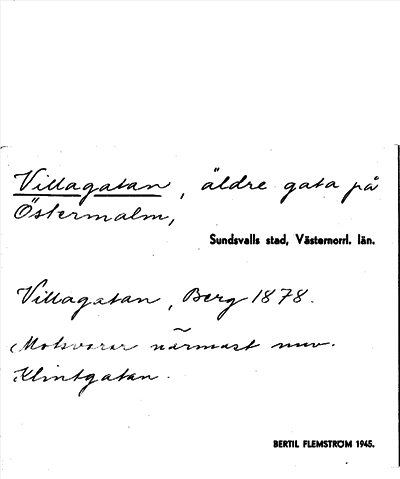 Villagatan, äldre gata på
Östermalm,
Sundsvalls stad, Västernorrl. län.
Villagatan, Berg 1878.
Motsvarar närmast nuv.
Klintgatan.
BERTIL FLEMSTRÖM 1945.